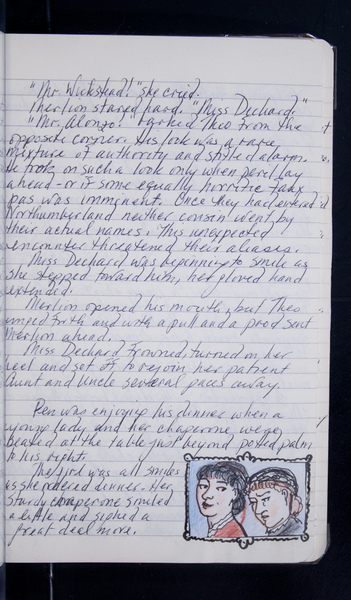 "Mr. Wickstead!" she cried.
Therlion stared hard. "Miss Dechard."
"Mr. Alonzo!" barked Theo from the
opposite corner. His look was a rare
mixture of authority and stifled alarm.
He took on such a look only when peril lay
ahead - or if some equally horrific faux
pas was imminent. Once they had entered
Northumberland neither cousin went by
their actual names. This unexpected
encounter threatened their aliases.
Miss Dechard was beginning to smile as
she stepped toward him, her gloved hand
extended.
Merlion opened his mouth, but Theo
jumped forth and with a pull and a prod sent
Merlion ahead.
Miss Dechard frowned, turned on her
heel and set off to rejoin her patient
Aunt and Uncle several paces away.
Pen was enjoying his dinner when a
young lady and her chaperone were
seated at the table just beyond potted palm
to his right.
The girl was all smiles
as she ordered dinner. Her
sturdy chaperone smiled
a little and sighed a
great deal more.